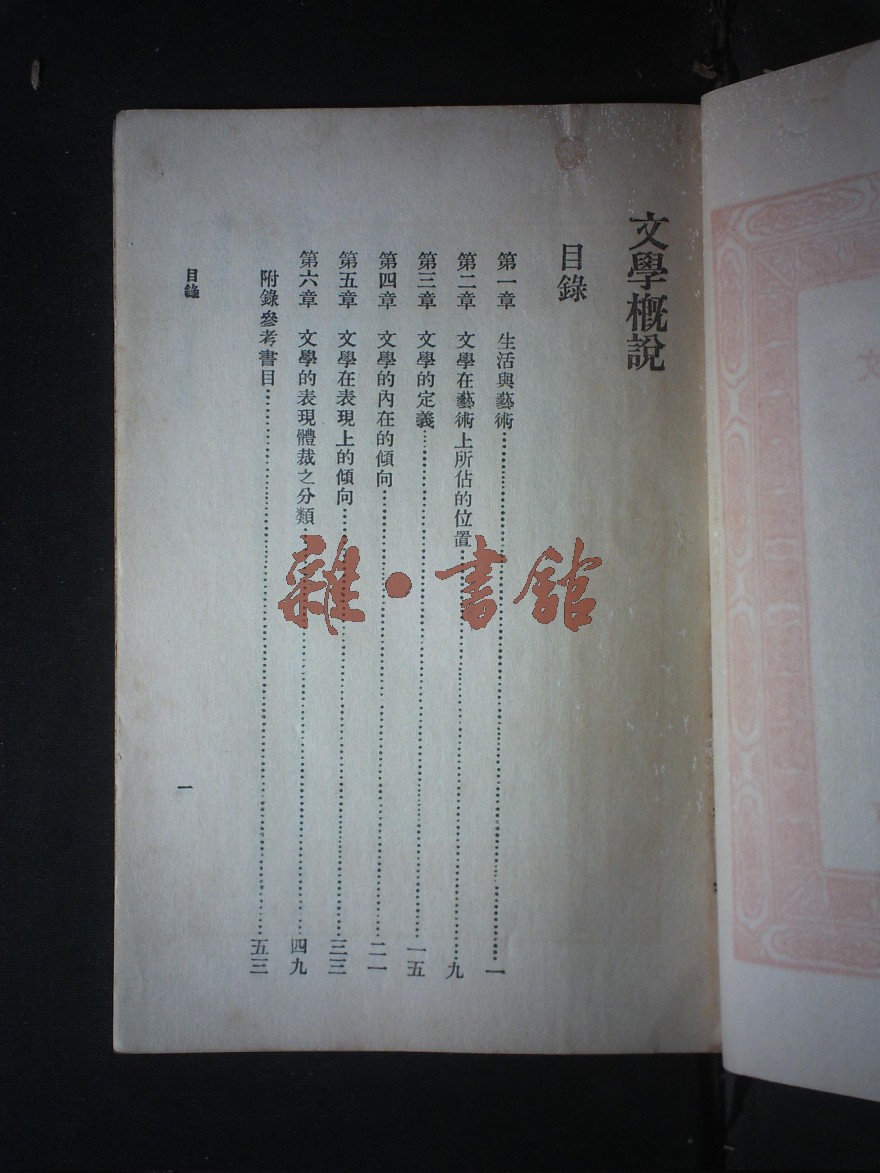 文學概說
目錄
第一章　生活與藝術……一
第二章　文學在藝術上所佔的位置……九
第三章　文學的定義……一五
第四章　文學的內在的傾向……二一
第五章　文學在表現上的傾向……三三
第六章　文學的表現體裁之分類……四九
附錄參考書目……五三
目錄
一
雜·書館
文